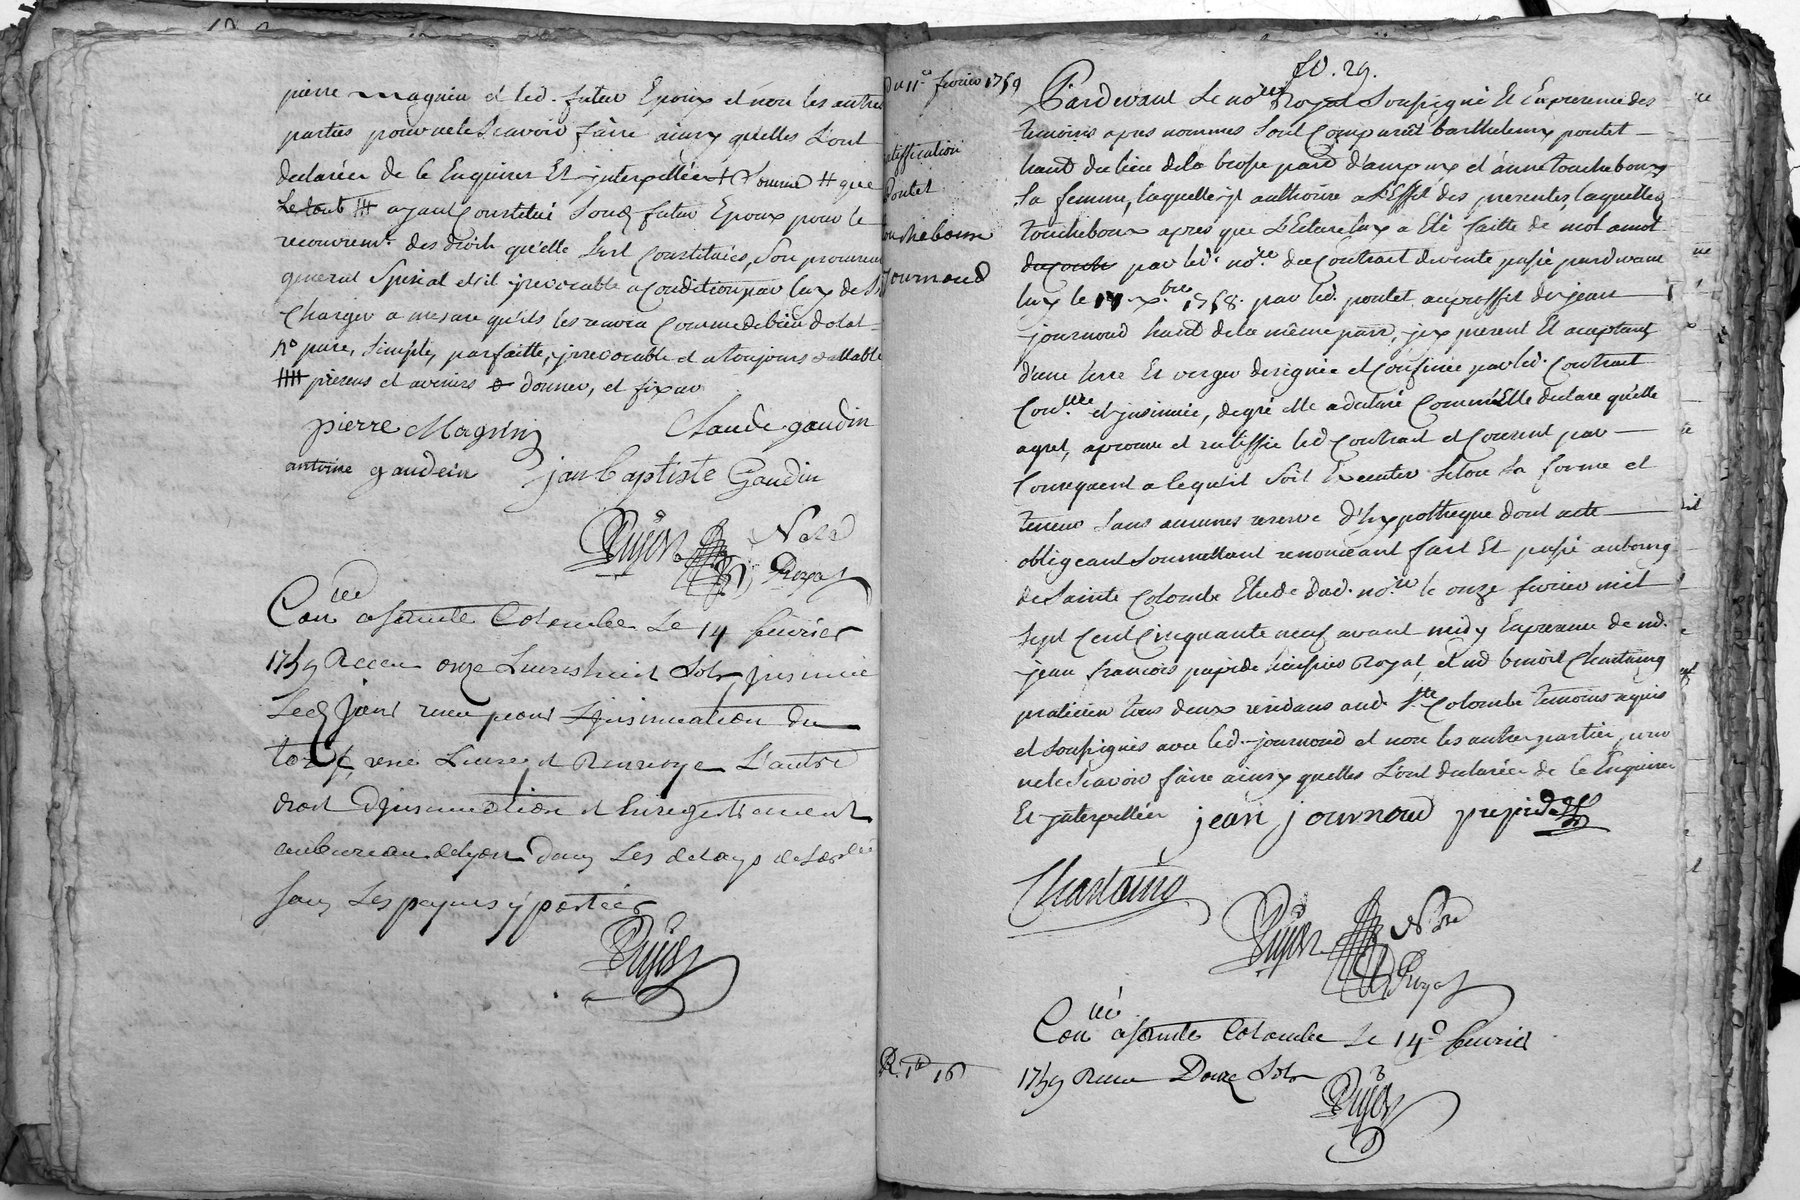 pierre magnin et led. futur Epoux et non les autres
parties pour ne le scavoir faire ainsy qu'elles l'ont
declarées de ce Enquises Et interpellées # que
Le tout ## ayant Constitué Sond. futur Epoux pour le
recouvrem.t des droits qu'elle s'est Constitués, Son procureur
general Special et il irrevocable a Condition par luy de S'en
Charger a mesure qu'il les recevra Comme de bien dotal
pure, Simple, parfaitte, irrevocable et a toujours vallable
presens et avenirs donner, et fixer
pierre Magnin Claude gaudin
antoine gaudein jan baptiste Gaudin
Dujon No.re
Royal
Con.llé a Sainte Colombe Le 14 fevrier
1759 Receu onze Livres huit Sols insinué
Led Jour receu pour L'insinuation du
une Livre et Renvoyé L'autre
droit D'insinuation et Enregistrement
au bureau de Lyon Dans Les delays de
Sous Les peynes y portées
Dujon
Du 11.e fevrier 1759
ratiffication
Poutet
Touchebouse
Journoud
R. 1# 16
fo. 29.
Pardevant Le no.re Royal Soussigné Et En presence des
temoins apres nommés Sont Comparus barthelemy poutet
hant du lieu de la brosse parr. d'ampuy et anne touchebouse
Sa femme, laquelle il authorise a L'Effet des presentes, laquelle
touchebouse apres que Lecture luy a Eté faitte de mot amot
du conte par led. no.re du Contrat de vente passé pardevant
luy le 17 x.bre 1758. par led. poutet au proffit de jean
journoud hant de la même parr, icy present Et aceptant,
d'une terre Et verger designée et Confinée par led. Contrat
Con.llé et insinué, de gré elle a declaré Comme Elle declare qu'elle
agrée, aprouve et ratiffie led Contrat et Consent par
Consequent a ce qu'il Soit Executer Selon Sa forme et
teneur Sans aucunes reserve d'hypotheque dont acte
obligeant Soumettant renonceant fait Et passé au bourg
de Sainte Colombe Etude dud. no.re le onze fevrier mil
Sept Cent Cinquante neuf avant midy En presence de md.
jean francois papide huissier Royal, et md benoit Chartaing
praticien tous deux residans aud. S.te Colombe temoins requis
et Soussignés avec led. journoud et non les autres parties, pour
ne le Scavoir faire ainsy qu'elles L'ont declarées de Ce Enquises
Et interpellées jean journoud papide
Chartaing
Dujon No.re
Royal
Con.llé a Sainte Colombe Le 14.e fevrier
1759 Receu Douze Sols
Dujon